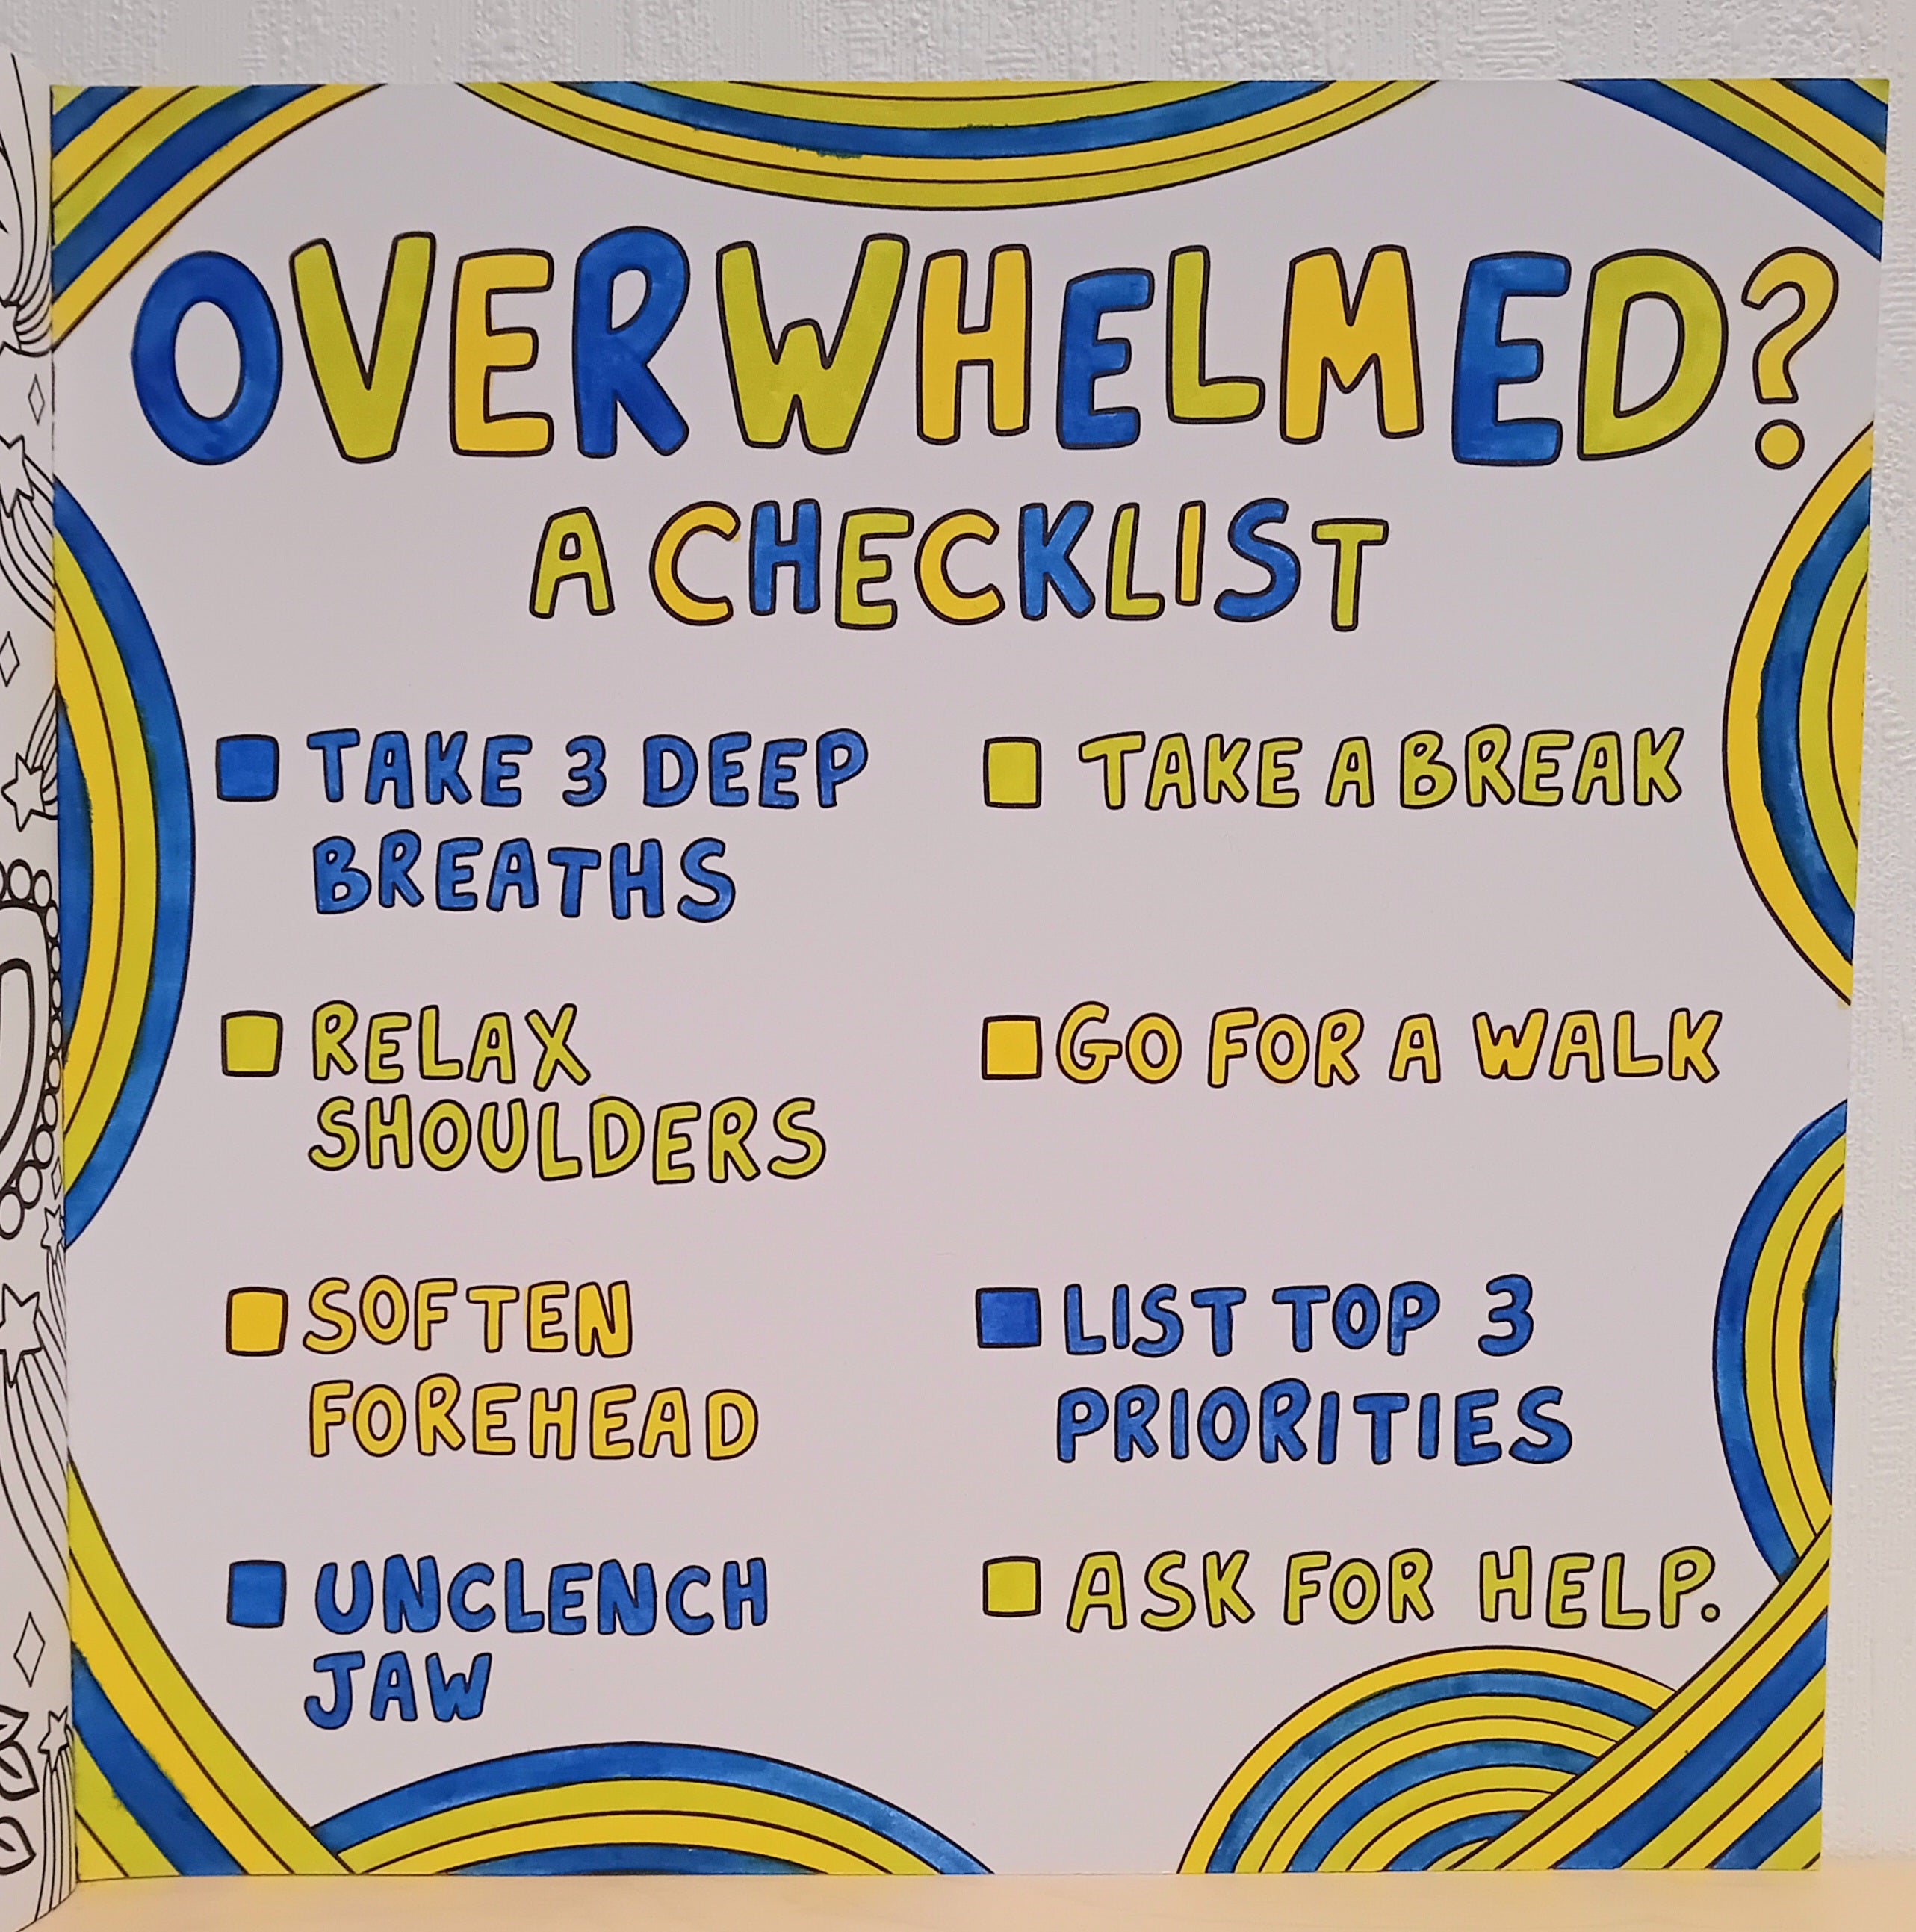 OVERWHELMED?
A CHECKLIST
TAKE 3 DEEP
BREATHS
RELAX
SHOULDERS
SOFTEN
FOREHEAD
UNCLENCH
JAW
TAKE A BREAK
GO FOR A WALK
LIST TOP 3
PRIORITIES
ASK FOR HELP.